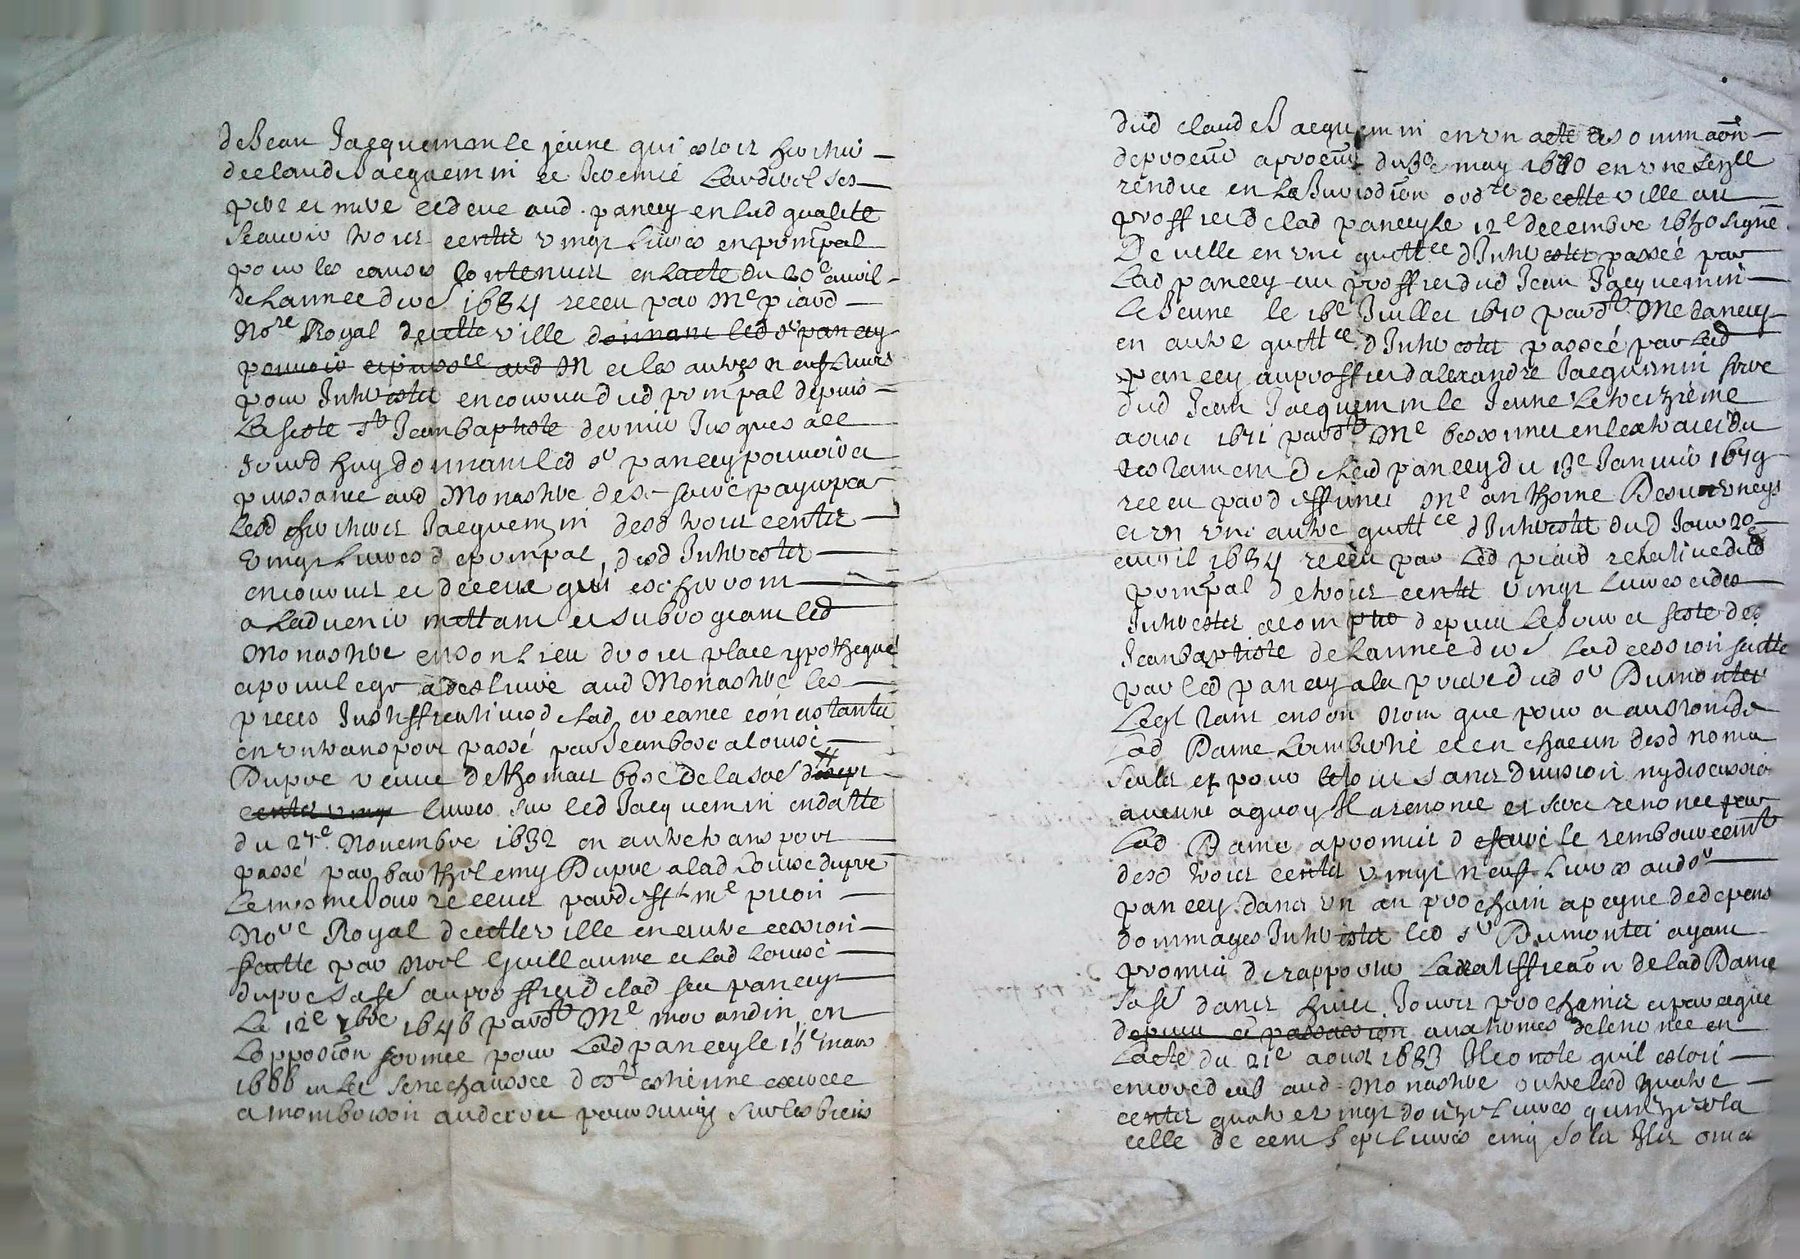 de Jean Jacquemin le jeune qui estoit heritier
de claude Jacquemin et Jeremie ses
pere et mere et deue aud. pancey en lad qualité
scauoir trois cents vingt liures en prinpal
pour les causes contenues en lacte du 20e auril
de lannee dre 1654 receu par Me piaud
Nore Royal de cette ville donnant led sr pancey
pouuoir et puissce aud M et les autres neuf liures
pour Interestz encourru dud prinpal depuis
La feste st Jean baptiste dernier Jusques a ce
Jourd huy donnant led sr pancey pouuoir et
puissance aud Monastre de se faire payer par
lesd heritiers Jacquemin desd trois cents
vingt liures de prinpal desd Interestz
encourus et de ceux qui escherront
a Laduenir mettant et subrogeant led
Monastre en son Lieu droit place ypotheque
et priuilege a deliuré aud Monastre les
pieces Justifficatiues de lad creance consistants
en vn transport passé par Jean bosc a louise
Dupre veuue de thomas bosc de la soe de sept
cents vingt liures sur led Jacquemin en datte
du 27e Nouembre 1632 en autre transport
passé par barthelemy Dupre a lad Louise dupre
Le mesme Jour receus par defft Me prion
Nore Royal de cette ville en autre cession
faitte par Noel Guillaume et lad Louise
dupre sa fe au proffit de lad feu pancey
Le 12e xbre 1646 pardt Me mourandin en
Lopposion formee pour Led pancey le 15e mars
1666 en la senechaussee de st estienne
a mombrison au decret poursuiuy sur les biens
dud claude Jacquemin en vn acte de sommaon
de proceur a proceur du 3e may 1670 en vne
rendue en La Jurisdion ordre de cette ville au
proffit de lad pancey le 12e decembre 1670 signé
De ville en vne quittce dInterestz passée par
Lad pancey au proffit dud Jean Jacquemin
le Jeune le 16e Juillet 1670 pardt Me dancey
en autre quittce dInterestz passée par led
pancey au proffit dalexandre Jacquemin frere
dud Jean Jacquemin le Jeune le treizieme
aoust 1671 pardt Me bessonnet en lextrait du
testament de lad pancey du 13e Januier 1679
receu par deffunct Me anthoine Desuerneys
et en vne autre quittce dInterestz dud Jour 20e
auril 1654 receu par Led piaud relatiue dud
prinpal de trois cents vingt liures et des
Interestz acompter depuis le Jour et feste de st
Jean baptiste de lannee dre Lad cession faitte
par led pancey a la priere dud sr Dumontet
Lequel tant en son nom que pour et au nom de
Lad Dame et en chacun desd noms
seul et pour le tout sans diuision ny discussion
aucune a quoy Il a renoncé et fera renoncer par
Lad Dame a promis de faire le rembourcemt
desd trois cents vingt neuf liures aud sr
pancey dans vn an prochain a peyne de depens
dommages Interestz led sr Dumontet ayant
promis de rapporter La ratiffication de lad Dame
sa fe dans huict Jours prochains et parceque
depuis et par les termes de lenoncé en
Lacte du 21e aoust 1683 Il conste quil estoit
enuoyé dans aud Monastre outre lesd quatre
cents quatre vingt douze liures quinze sols
celle de cent sept liures cinq sols Ils ont